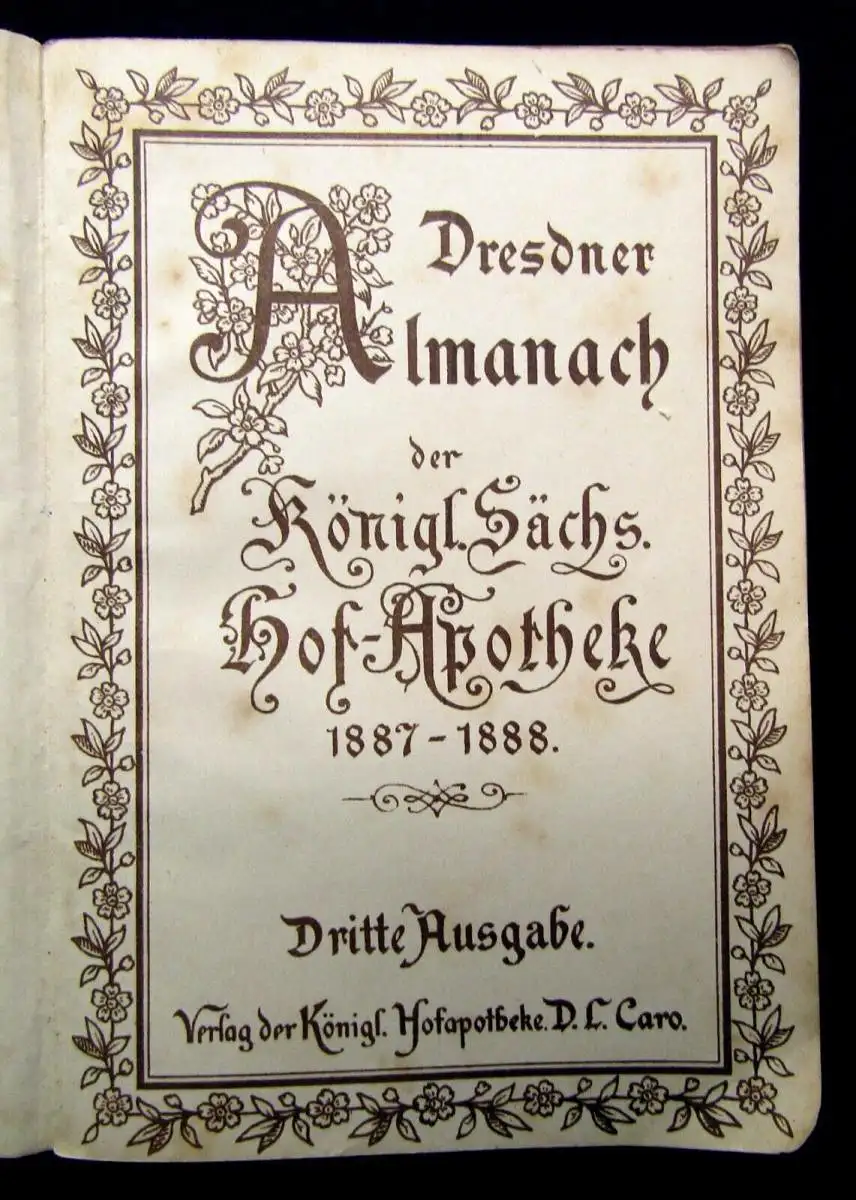 Dresdner
Almanach
der
Königl. Sächs.
Hof-Apotheke
1887-1888.
Dritte Ausgabe.
Verlag der Königl. Hofapotheke. D. L. Caro.